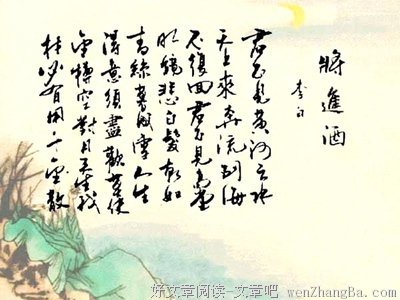 將進酒
李白
君不見黃河之水
天上來奔流到海
不復回君不見高堂
明鏡悲白髮朝如
青絲暮成雪人生
得意須盡歡莫使
金樽空對月天生我
材必有用千金散
好文章阅读-文章吧 wenZhangBa.com